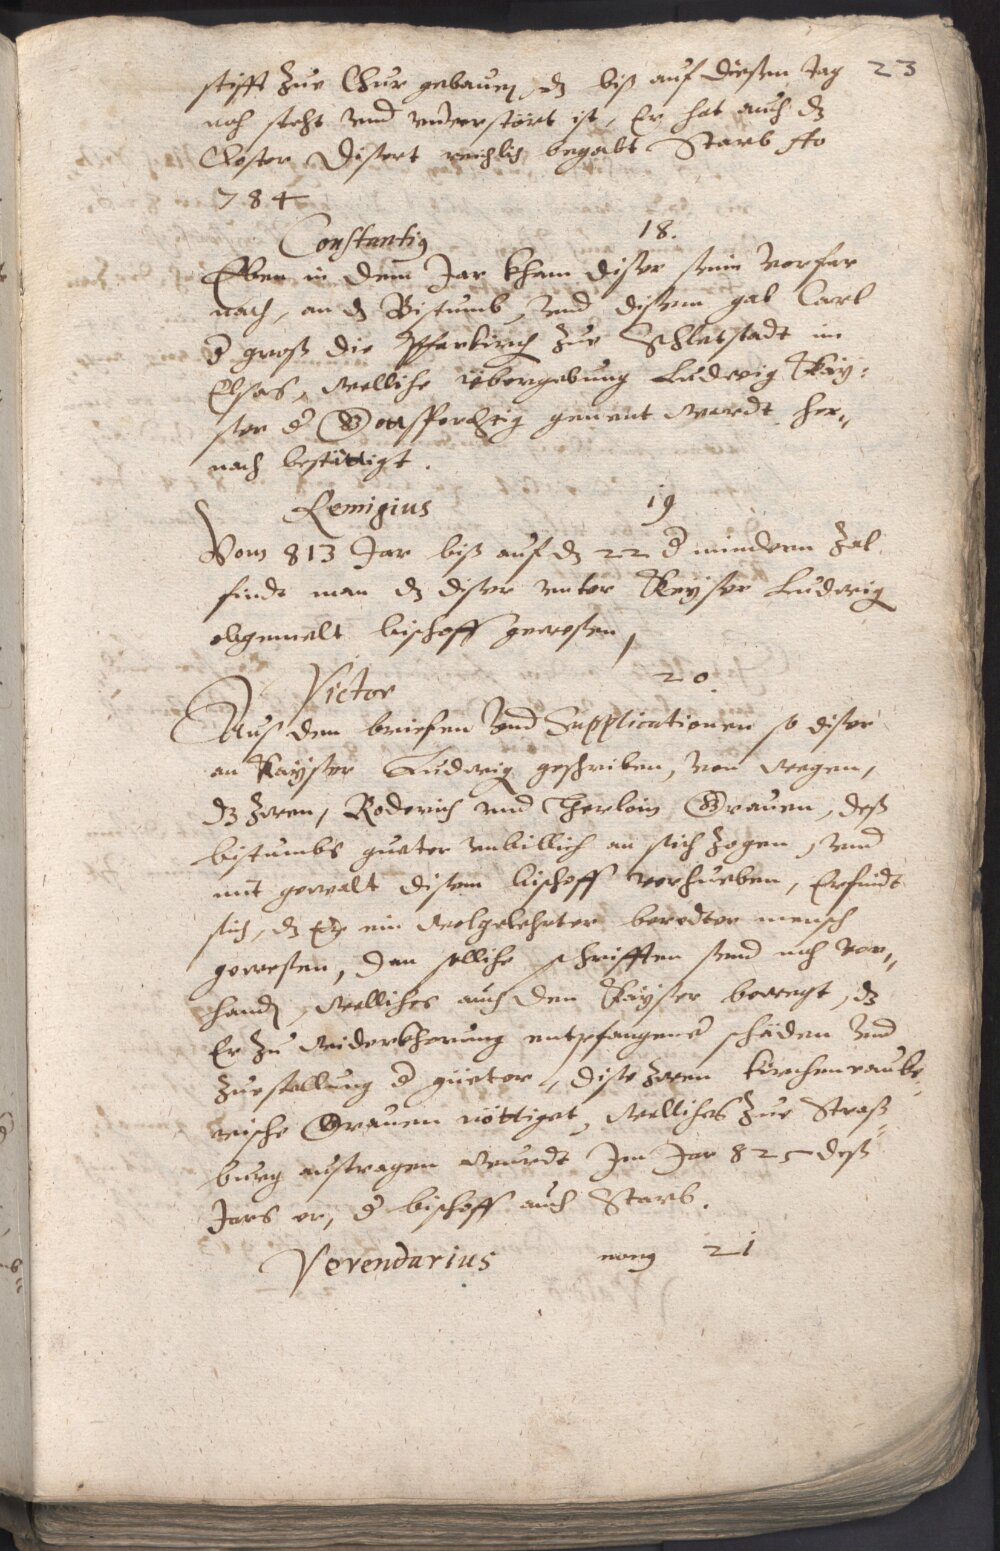 23
stifft zue Chur gebauen, dz biß auf diesen tag
noch steht vnd vnzerstört ist, Er hat auch dz
Closter Disert reichlich begabt Starb Ao
784
Constantig 18.
Eben in dem Jar kham diser seim vorfar
nach, an dz Bistumb, vnd disem gab Carl
d groß die Pfarkirch zue Schletstadt im
Elsas, welliche übergebung Ludwig Kay:
ser d Gottsforchtig genent wardt, her„
nach bestättigt.
Remigius 19
Vom 813 Jar biß auf dz 22 d mindern Zal
findt man dz diser vnter Keyser Ludwig
obgemelt bischoff gewesen,
Victor 20.
Auß den briefen vnd Supplicationen so diser
an Kayser Ludwig geschriben, von wegen,
dz zwen, Roderich vnd Herloin Grauen, deß
bistumbs gueter vnbillich an sich zogen, vnd
mit gewalt disem bischoff vorhueben, Erfindt
sich, dz Er ein wolgelehrter beredter mensch
gewesen, dan selliche schrifften send noch vor„
handen, welliches auch den Kayser bewegt, dz
Er zu widerkherung entpfangene schäden vnd
zuestellung d güeter, dise zwen kirchenraube„
rische Grauen nöttiget, welliches zue Straß„
burg austragen wurdt Im Jar 825 deß
Jars er, d bischoff auch Starb.
Verendarius nong 21